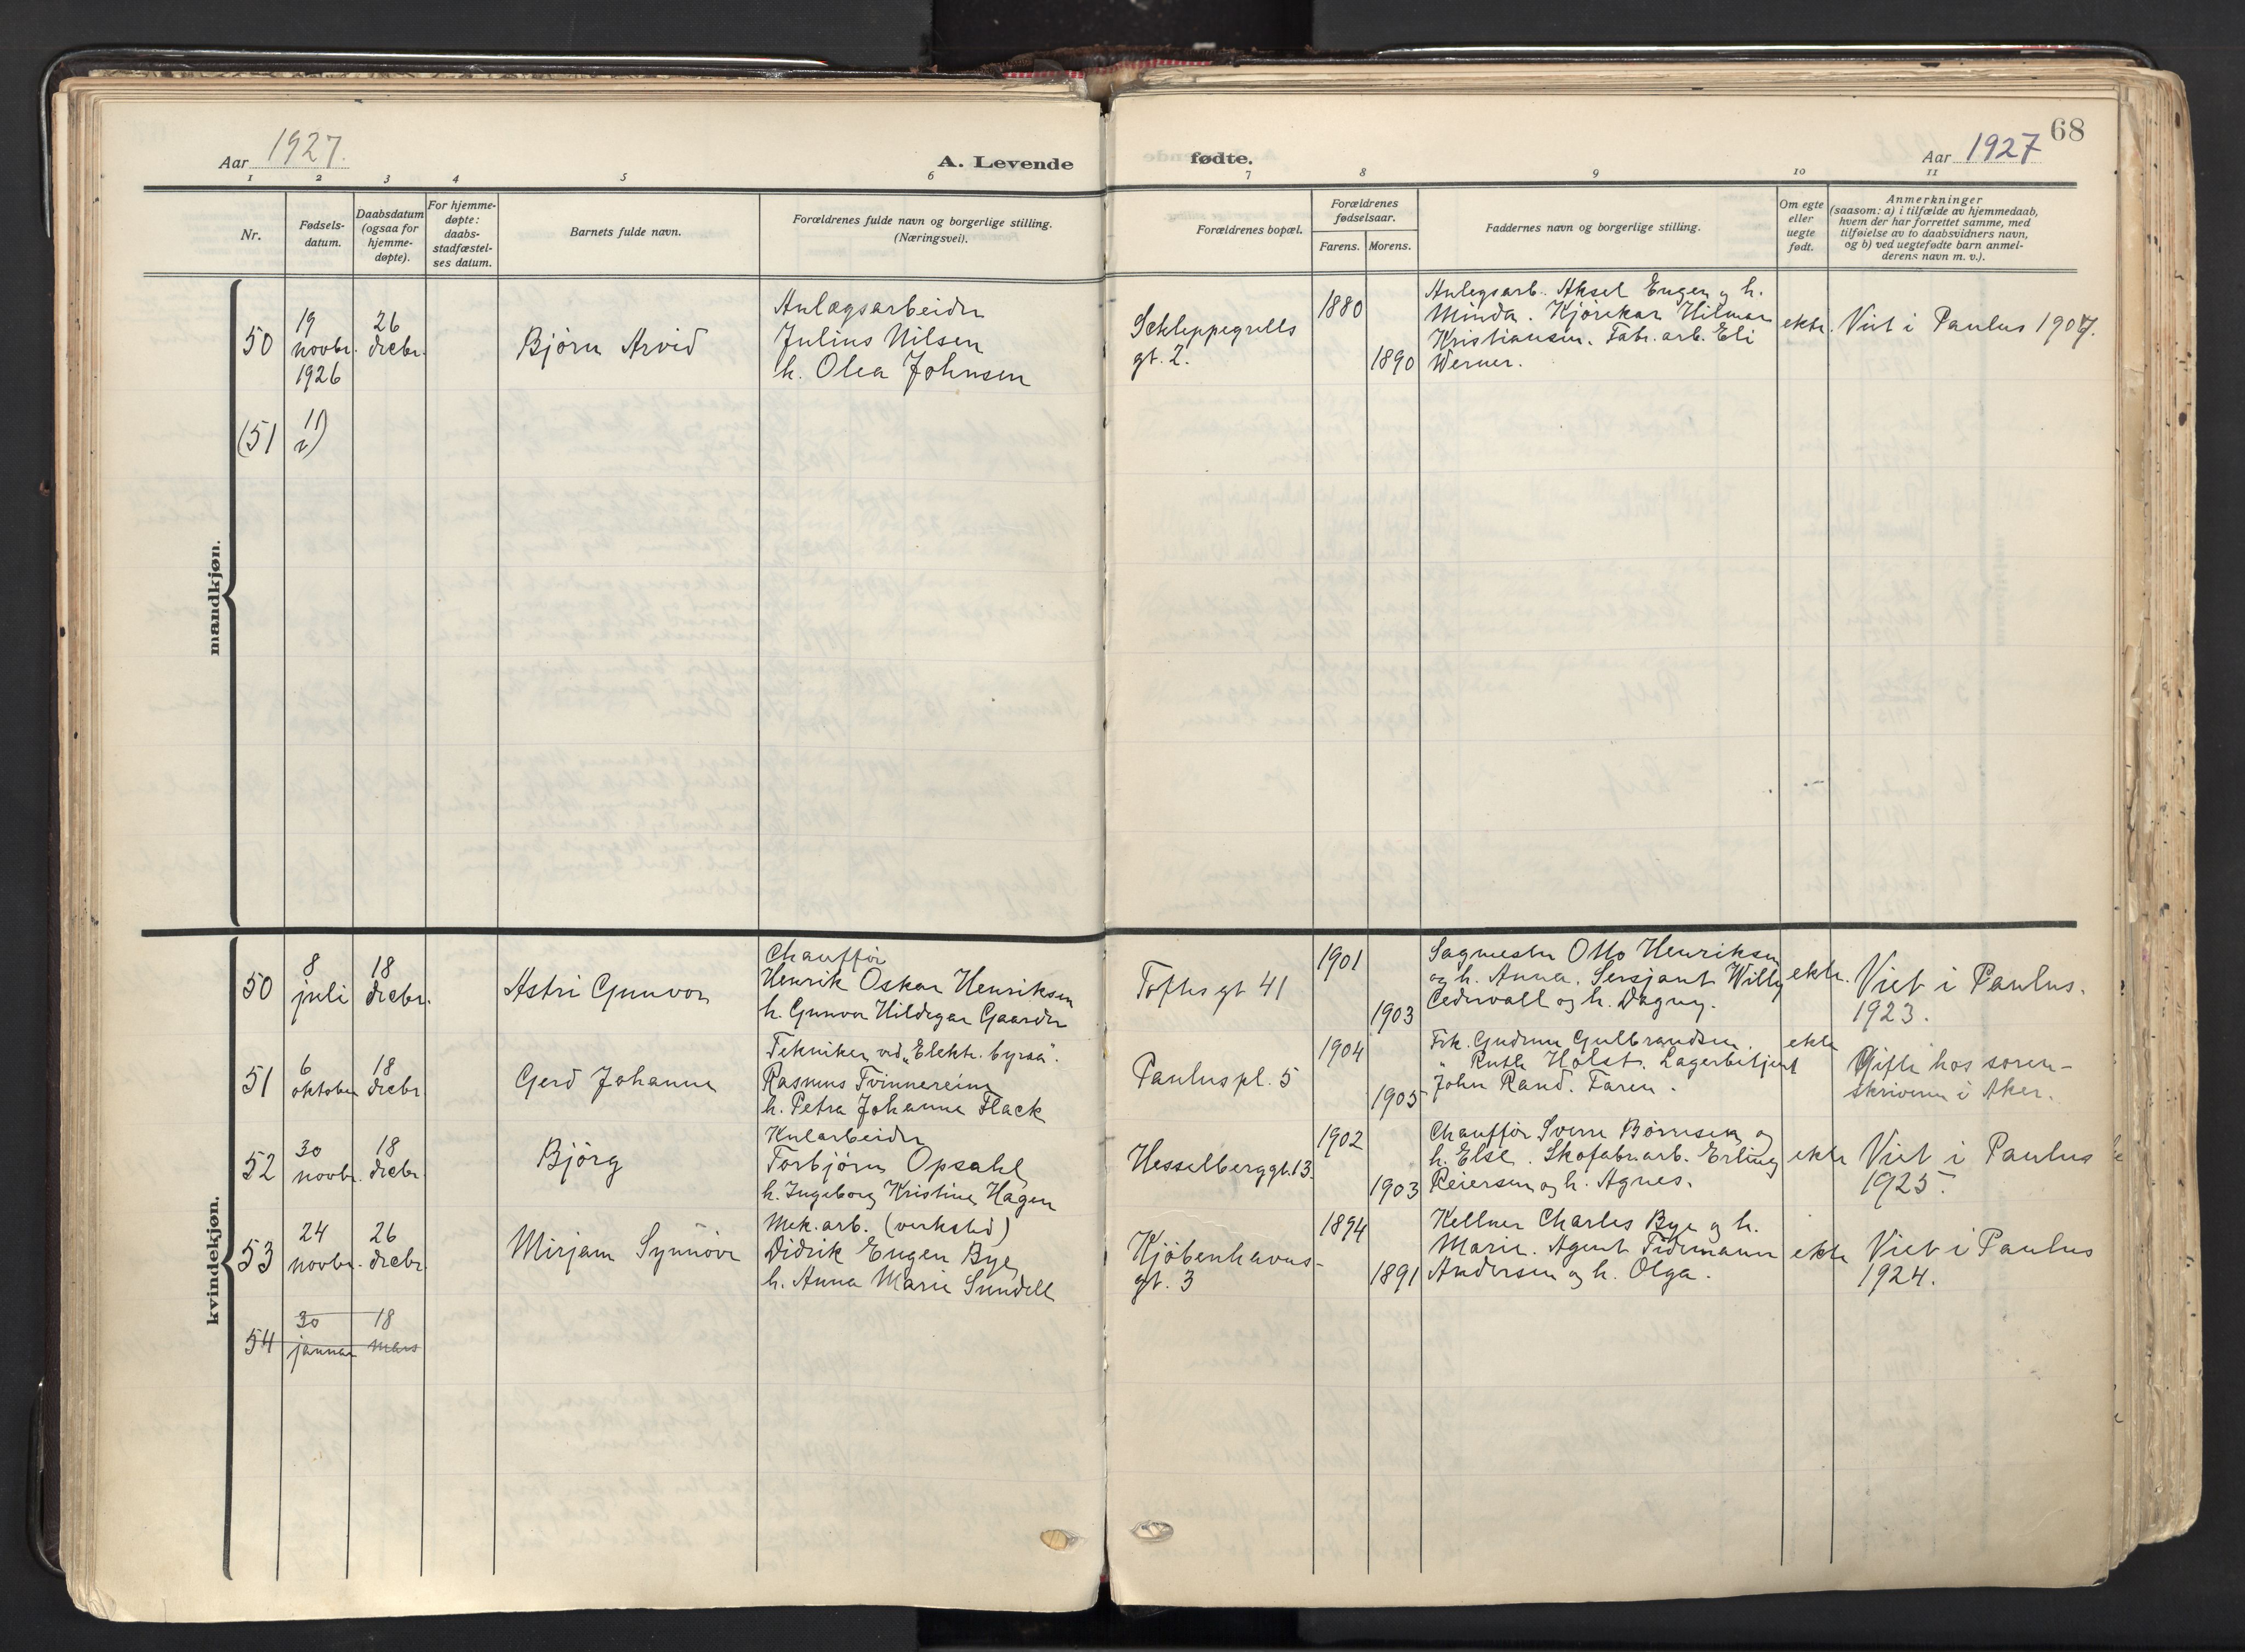 68
Aar 1927.
A. Levende
fødte.
Aar 1927
1 2 3 4 5 6 7 8 9 10 11
Nr.
Fødsels-
datum.
Daabsdatum
(ogsaa for
hjemme-
døpte).
For hjemme-
døpte:
daabs-
stadfæstel-
ses datum.
Barnets fulde navn.
Forældrenes fulde navn og borgerlige stilling.
(Næringsvei).
Forældrenes bopæl.
Forældrenes
fødselsaar.
Farens. Morens.
Faddernes navn og borgerlige stilling.
Om egte
eller
uegte
født.
Anmerkninger
(saasom: a) i tilfælde av hjemmedaab,
hvem der har forrettet samme, med
tilføielse av to daabsvidners navn,
og b) ved uegtefødte barn anmel-
derens navn m. v.).
mandkjøn.
50
19
novbr.
1926
26
decbr.
Bjørn Arvid
Anlægsarbeider
Julius Nilsen
h. Olea Johnsen
Schleppegrells
gt. 2.
1880
1890
Anlegsarb. Aksel Eugen og h.
Minda. Kjørekar Hilmar
Kristiansen. Fabr. arb. Eli
Werner.
ekte.
Viet i Paulus 1907.
(51
11
)
kvindekjøn.
50
8
juli
18
decbr.
Astri Gunvor
Chauffør
Henrik Oskar Henriksen
h. Gunvor Hildegar Gaarder
Toftes gt 41
1901
1903
Sagmester Otto Henriksen
og h. Anna. Sersjant Willy
Cedervall og h. Dagny.
ekte.
Viet i Paulus.
1923.
51
6
oktober
18
decbr
Gerd Johanne
Tekniker ved „Elektr. byraa".
Rasmus Tvinnereim
h. Petra Johanne Flack
Paulus pl. 5
1904
1905
Frk. Gudrun Gulbrandsen.
" Ruth Holst. Lagerbetjent
John Rand. Faren.
ekte
Gifte hos soren-
skriveren i Aker.
52
30
novbr.
18
decbr.
Bjørg
Kularbeider
Torbjørn Opsahl
h. Ingeborg Kristine Hagen
Hesselberggt. 13.
1902
1903
Chauffør Sverre Børnsen og
h. Else. Skofabr. arb. Erling
Reiersen og h. Agnes.
ekte
Viet i Paulus
1925.
53
24
novbr.
26
decbr.
Mirjam Synnøve
Mek. arb. (verksted)
Didrik Eugen Bye
h. Anna Marie Sundell
Kjøbenhavns-
gt. 3
1894
1891
Kellner Charles Bye og h.
Marie. Agent Tidemann
Andersen og h. Olga.
ekte
Viet i Paulus
1924.
54
30
januar
18
mars